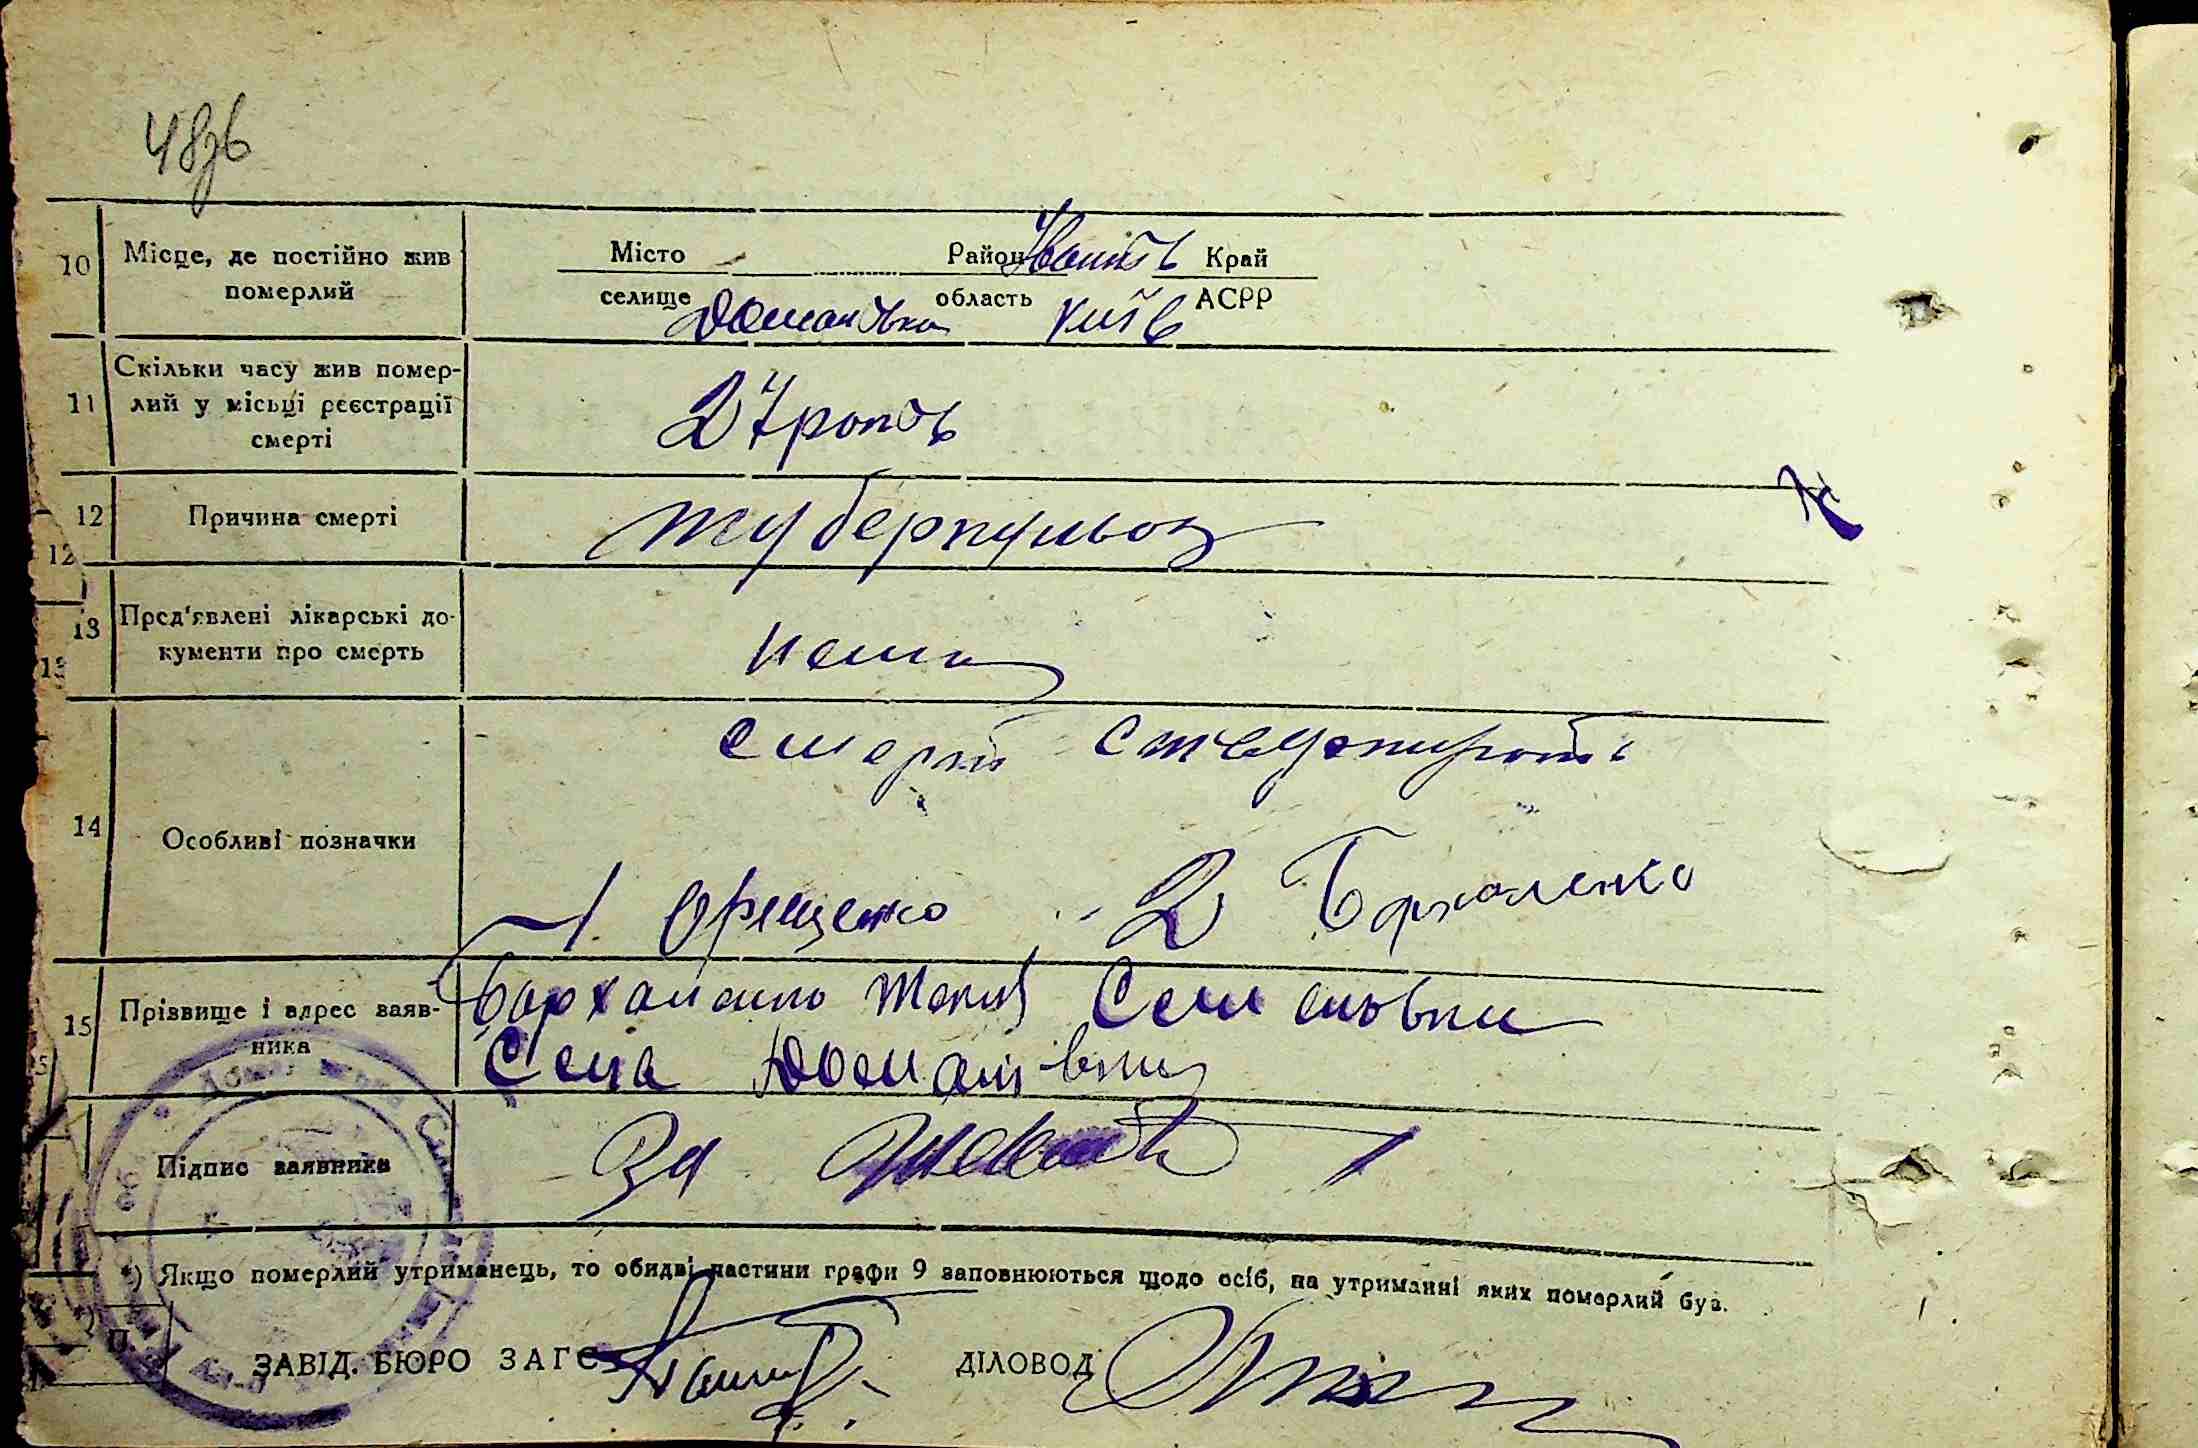 48зв
10 Місце, де постійно жив померлий
Місто - Район Іванків Край
селище Доманівка область Київ АСРР
11 Скільки часу жив помер-
лий у місьці реєстрації
смерті
27 років
12 Причина смерті туберкульоз
12
13 Пред'явлені лікарські до-
кументи про смерть
нема
14 Особливі позначки
смерть стверджують
1. Орещенко 2 Бархаленко
15 Прізвище і адрес заяв-
ника
Семеновни
Села Доманівки
Підпис заявника За
*) Якщо померлий утриманець, то обидві частини графи 9 заповнюються щодо осіб, на утриманні яких померлий був.
ЗАВІД. БЮРО ЗАГС ДІЛОВОД